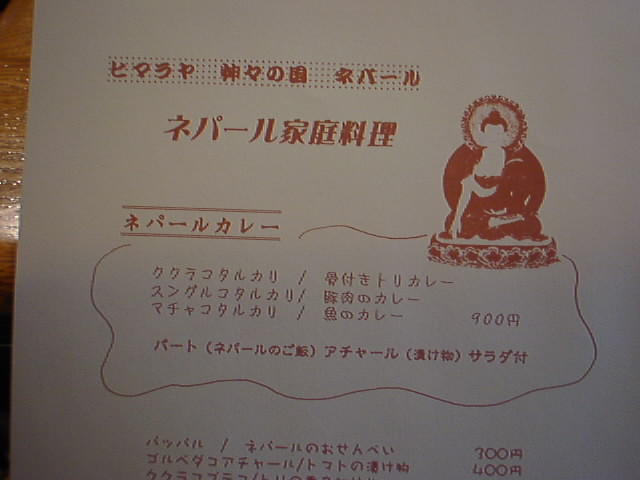 ヒマラヤ 神々の国 ネパール
ネパール家庭料理
ネパールカレー
ククラコタルカリ / 骨付きトリカレー
スングルコタルカリ/ 豚肉のカレー
マチャコタルカリ / 魚のカレー 900円
バート（ネパールのご飯）アチャール（漬け物）サラダ付
パッパル / ネパールのおせんべい 300円
ゴルベダコアチャール/トマトの漬け物 400円